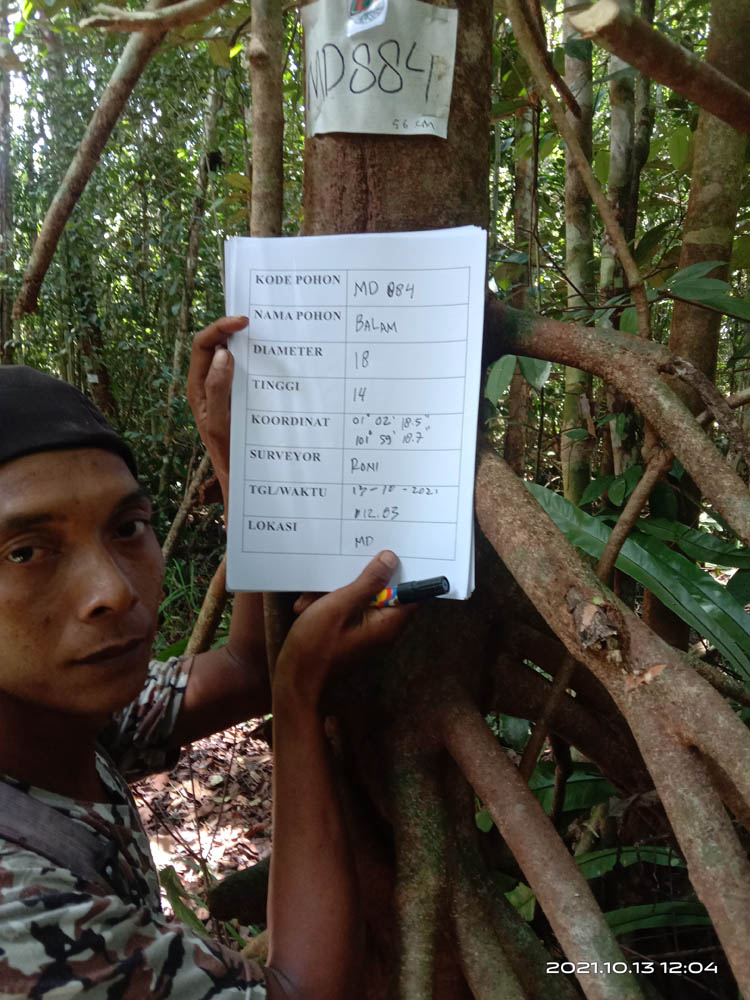 MD884
56 CM
KODE POHON MD 884
NAMA POHON BALAM
DIAMETER 18
TINGGI 14
KOORDINAT 01° 02' 18.5"
101° 59' 18.7"
SURVEYOR RONI
TGL/WAKTU 13-10-2021
12.03
LOKASI MD
2021.10.13 12:04